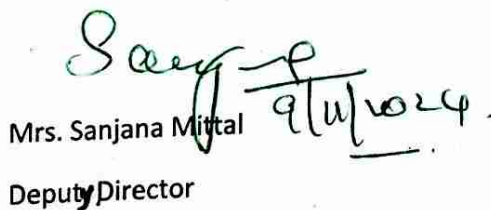 9/11/2024
Mrs. Sanjana Mittal
Deputy Director